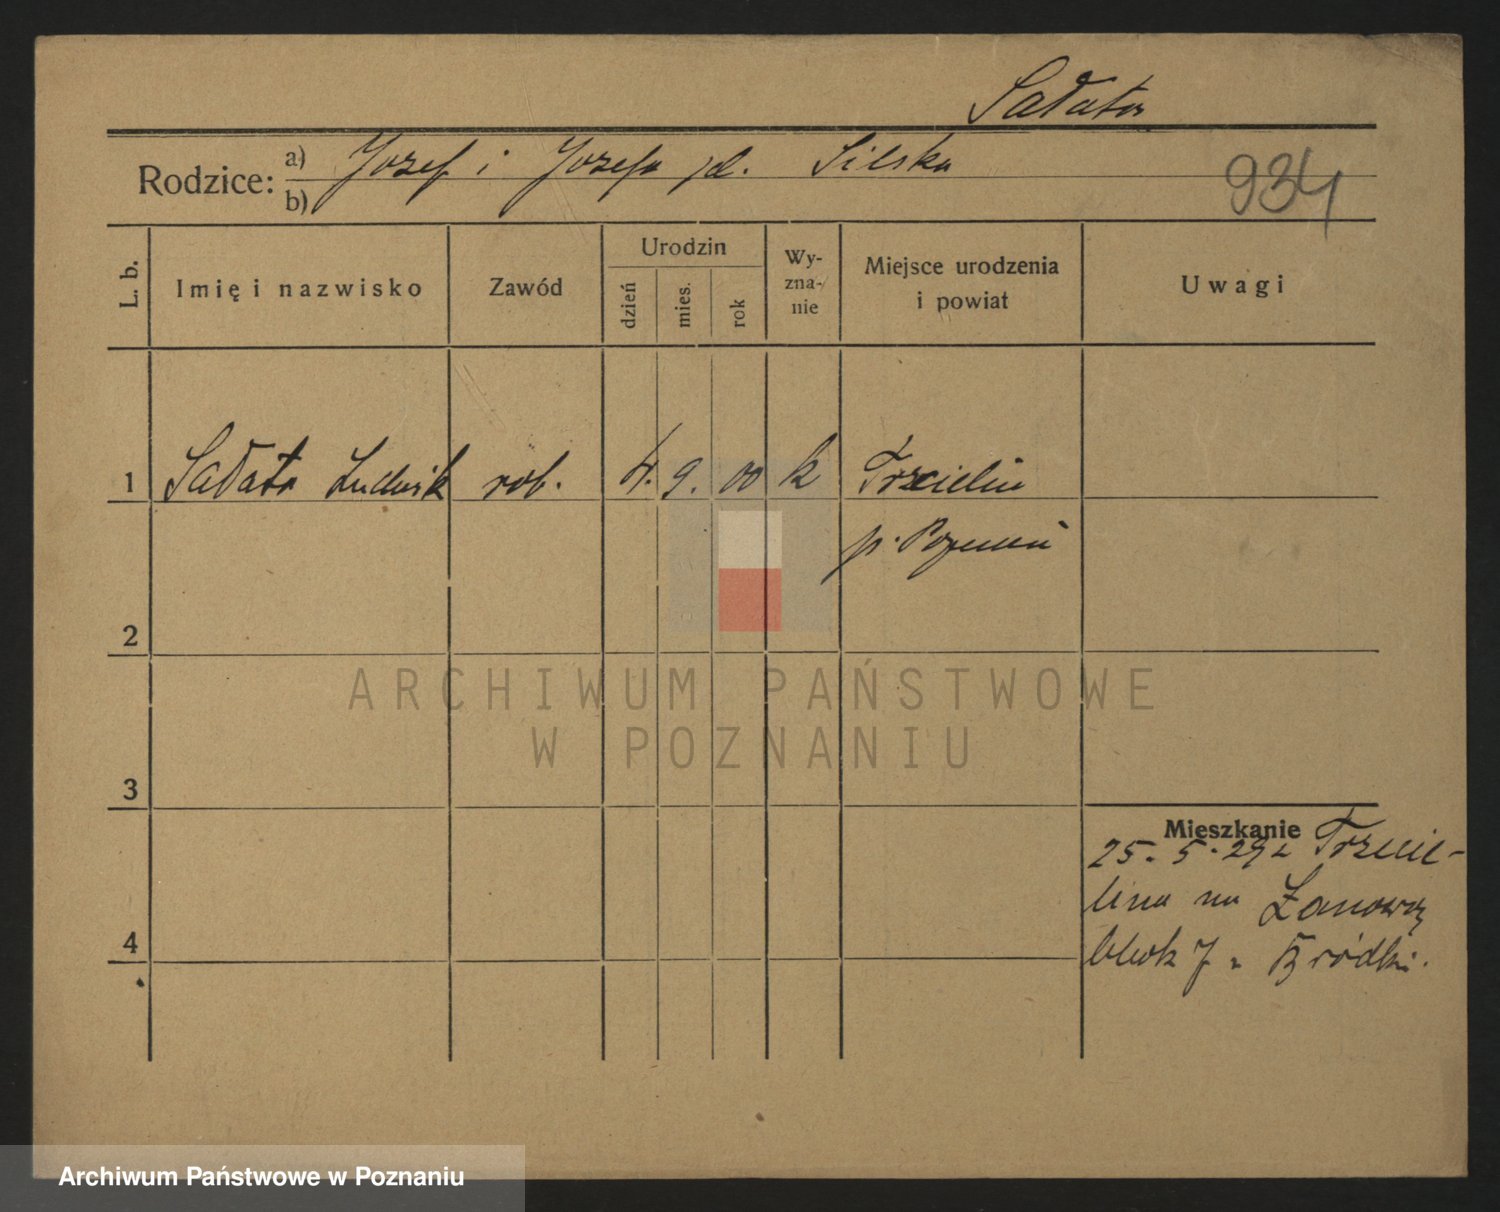 Sałata
Rodzice: a) Józef i Józefa zd. Silska
b)
934
L. b.
Imię i nazwisko
Zawód
Urodzin
dzień
mies.
rok
Wy-
zna-
nie
Miejsce urodzenia
i powiat
Uwagi
1 Sałata Ludwik rob. 4. 9. 00 k Trzcielin
p. Poznań
2
ARCHIWUM PAŃSTWOWE
W POZNANIU
3
Mieszkanie
25. 5. 29 z Trzcie-
lina na
blok 7
4
Archiwum Państwowe w Poznaniu